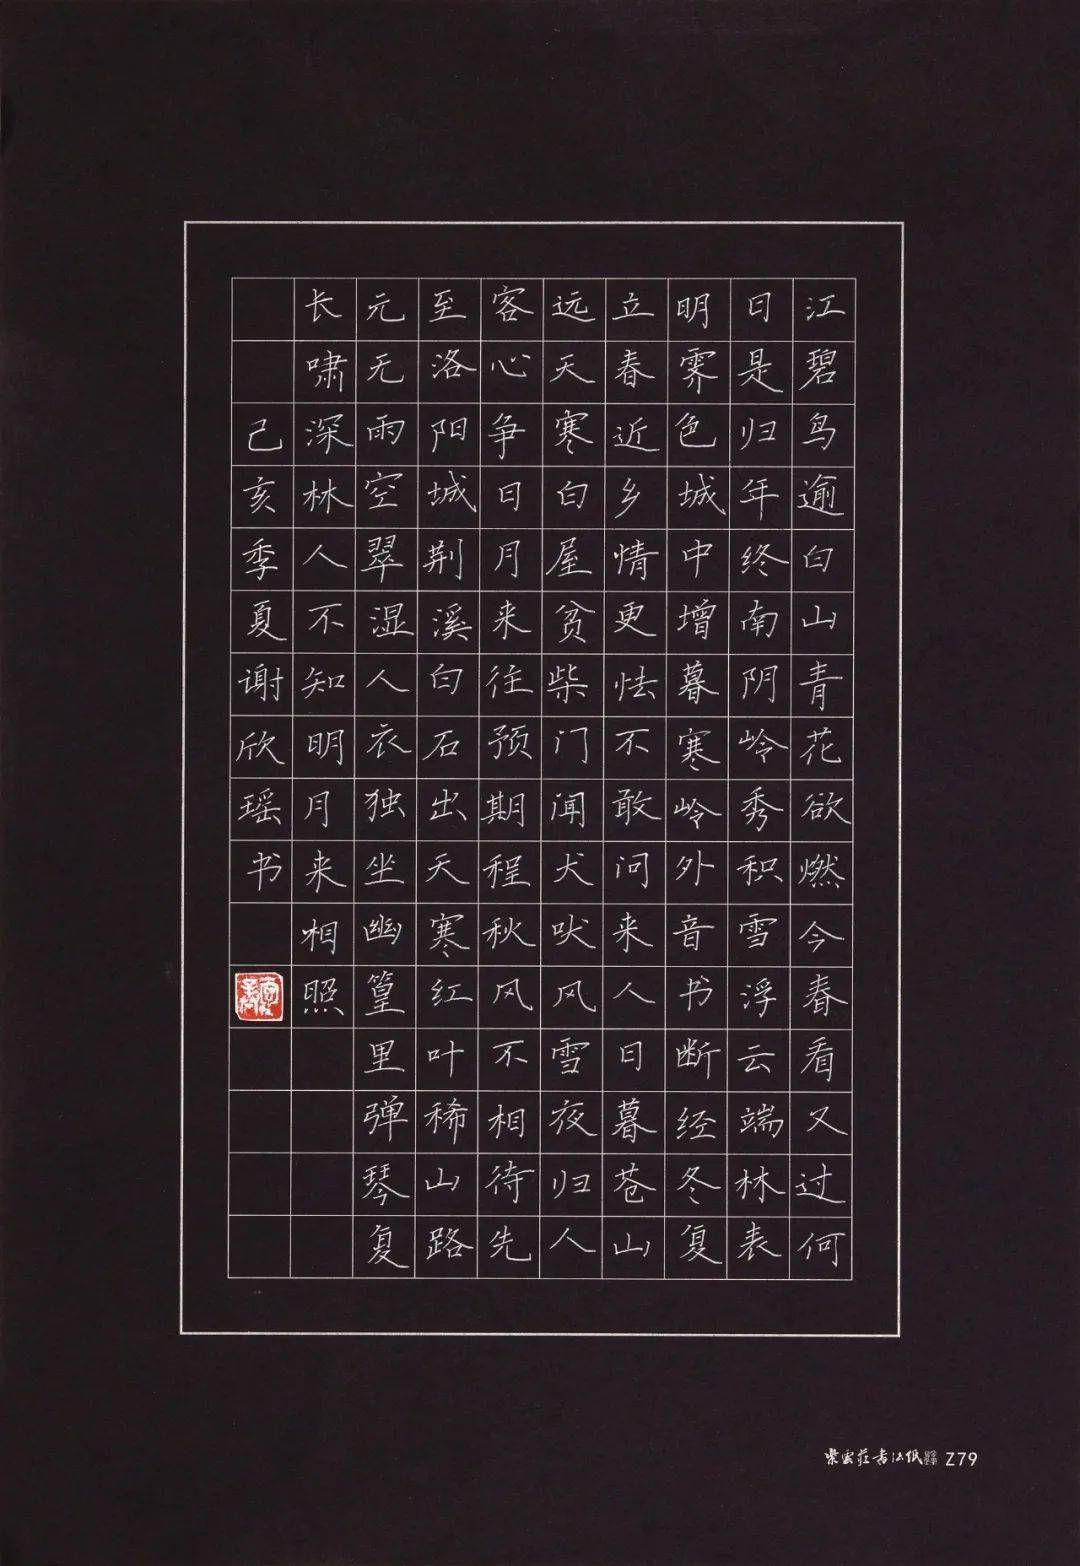 江碧鸟逾白山青花欲燃今春看又过何
日是归年终南阴岭秀积雪浮云端林表
明霁色城中增暮寒岭外音书断经冬复
立春近乡情更怯不敢问来人日暮苍山
远天寒白屋贫柴门闻犬吠风雪夜归人
客心争日月来往预期程秋风不相待先
至洛阳城荆溪白石出天寒红叶稀山路
元无雨空翠湿人衣独坐幽篁里弹琴复
长啸深林人不知明月来相照
己亥季夏谢欣瑶书
紫雲莊書法紙 Z79